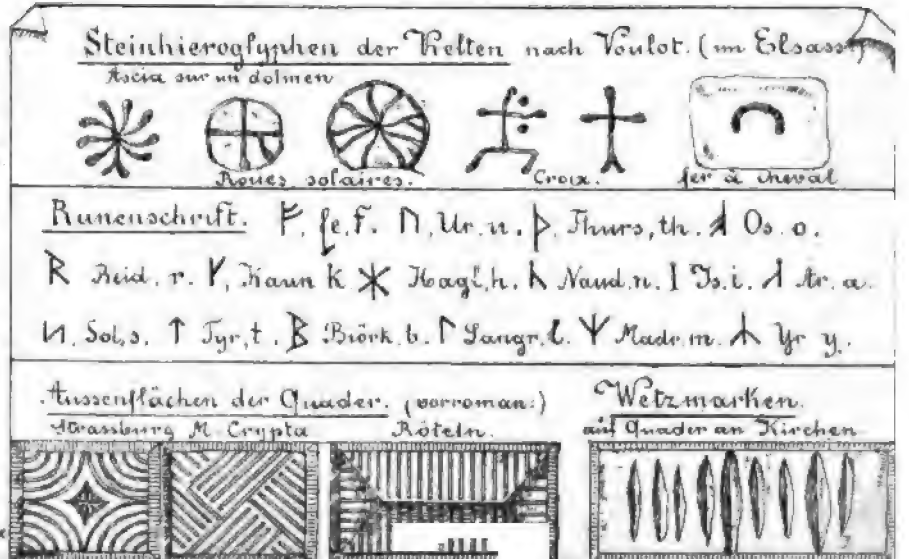 Steinhieroglyphen der Kelten nach Voulot. (im Elsass)
Ascia sur un dolmen
Roues solaires. Croix. fer à cheval
Runenschrift. ᚠ, fe. F. ᚢ, Ur. u. ᚦ, Thurs, th. ᚭ Os. o.
ᚱ Reid. r. ᚴ, Kaun k ᚼ Hagl, h. ᚾ Naud. n. ᛁ Is. i. ᛅ Ar. a.
ᛋ, Sol, s. ᛏ Tyr, t. ᛒ Biörk. b. ᛚ Langr. l. ᛘ Madr. m. ᛦ Yr y.
Aussenflächen der Quader. (vorroman:) Wetzmarken.
Strassburg M. Crypta Röteln. auf Quader an Kirchen